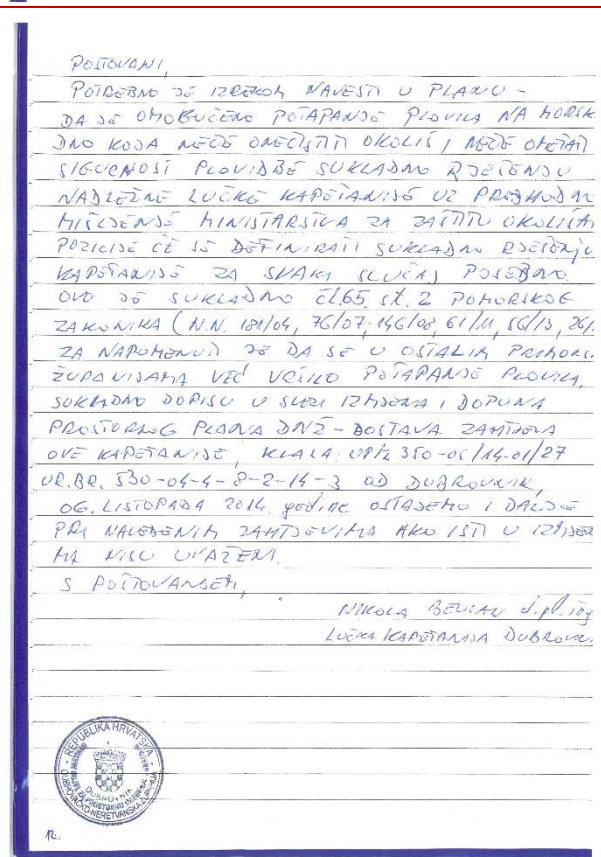 POŠTOVANI,
POTREBNO JE IZREKOM NAVESTI U PLANU -
DA JE OMOGUĆENO POTAPANJE PLOVILA NA MORSK
DNO KOJA NEĆE ONEČISTITI OKOLIŠ I NEĆE OMETATI
SIGURNOST PLOVIDBE SUKLADNO RJEŠENJU
NADLEŽNE LUČKE KAPETANIJE UZ PREDHODNO
MIŠLJENJE MINISTARSTVA ZA ZAŠTITU OKOLIŠA,
POZICIJE ĆE SE DEFINIRATI SUKLADNO RJEŠENJU
KAPETANIJE ZA SVAKI SLUČAJ POSEBNO.
OVO JE SUKLADNO ČL.65. ST. 2 POMORSKOG
ZAKONIKA (N.N. 181/04, 76/07, 146/08, 61/11, 56/13, 26/.
ZA NAPOMENUTI JE DA SE U OSTALIM PRIMORS.
ŽUPANIJAMA VEĆ VRŠILO POTAPANJE PLOVILA,
SUKLADNO DOPISU U SVEZI IZMJENA I DOPUNA
PROSTORNOG PLANA DNŽ - DOSTAVA ZAHTJEVA
OVE KAPETANIJE, KLASA: UP/I 350-05/14-01/27
UR.BR. 530-04-4-8-2-14-3 OD DUBROVNIK,
06. LISTOPADA 2014. godine OSTAJEMO I DALJE
PRI NAVEDENIM ZAHTJEVIMA AKO ISTI U IZMJENA
MA NISU UVAŽENI.
S POŠTOVANJEM,
NIKOLA dipl.ing
LUČKA KAPETANIJA DUBROVN.
REPUBLIKA HRVATSKA
DUBROVAČKO-NERETVANSKA ŽUPANIJA
DUBROVNIK
12.